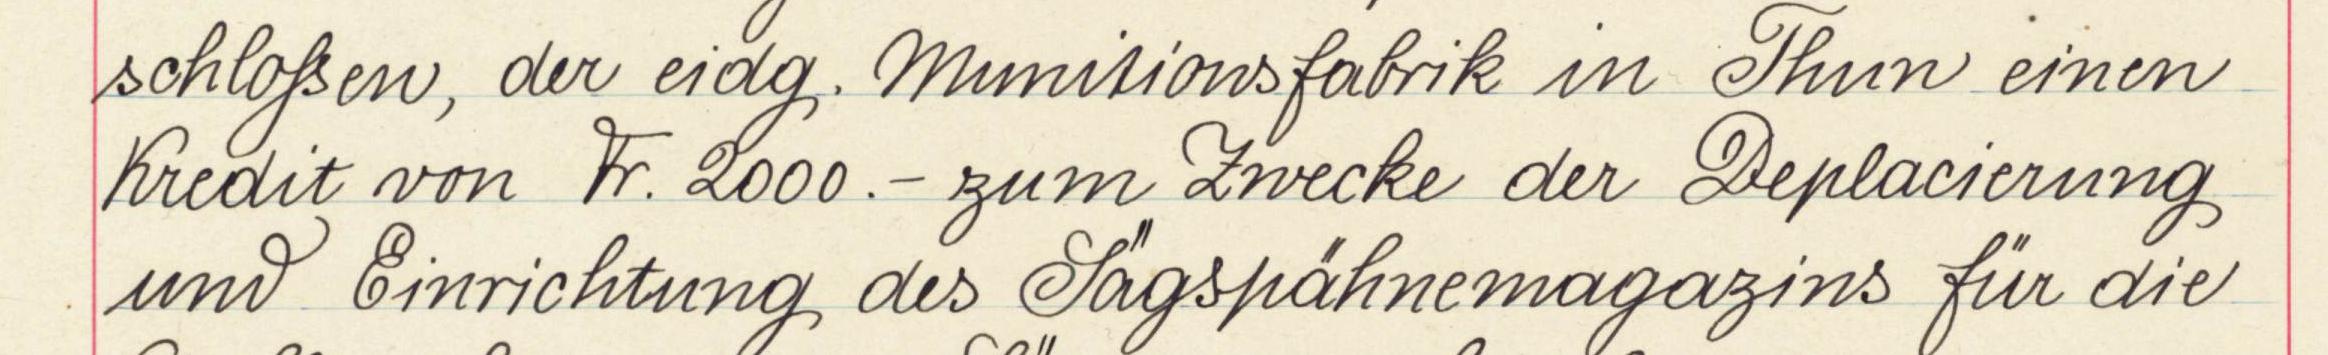 schloßen, der eidg. Munitionsfabrik in Thun einen
Kredit von Fr. 2000.- zum Zwecke der Deplacierung
und Einrichtung des Sägspähnemagazins für die